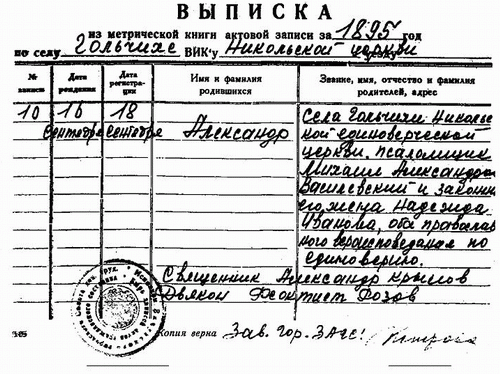 ВЫПИСКА
из метрической книги актовой записи за 1895 год
по селу Гольчихе ВИК'у Никольской церкви
№ записи
Дата рождения
Дата регистра- ции
Имя и фамилия родившихся
Звание, имя, отчество и фамилия родителей, адрес
10 16 сентября 18 сентября Александр
Села Гольчихи Николь
ской единоверческой
церкви, псаломщик
Михаил Александро
Василевский и законн
его жена Надежда
Иванова, оба православ
ного вероисповедания по
единоверию.
Священник Александр Крылов
Дьякон Феоктист Розов
Копия верна Зав. гор. ЗАГС!